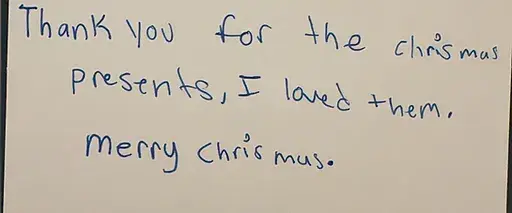 Thank you for the chrismas
presents, I loved them.
merry chrismas.